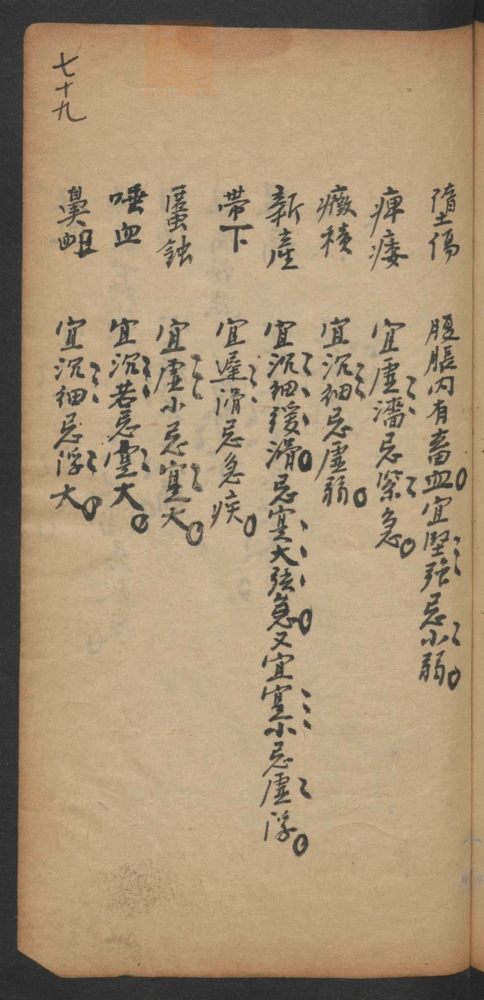 墮傷 腹脹内有畜血。宜堅强忌小弱。
痺痿 宜虛濇忌緊急。
癥積 宜沉細忌虛弱。
新產 宜沉細緩滑。忌寔大弦急。又宜寔小忌虛浮。
帶下 宜遲滑忌急疾。
䘌蝕 宜虛小忌寔大。
唾血 宜沉若忌寔大。
鼻衄 宜沉細忌浮大。
七十九